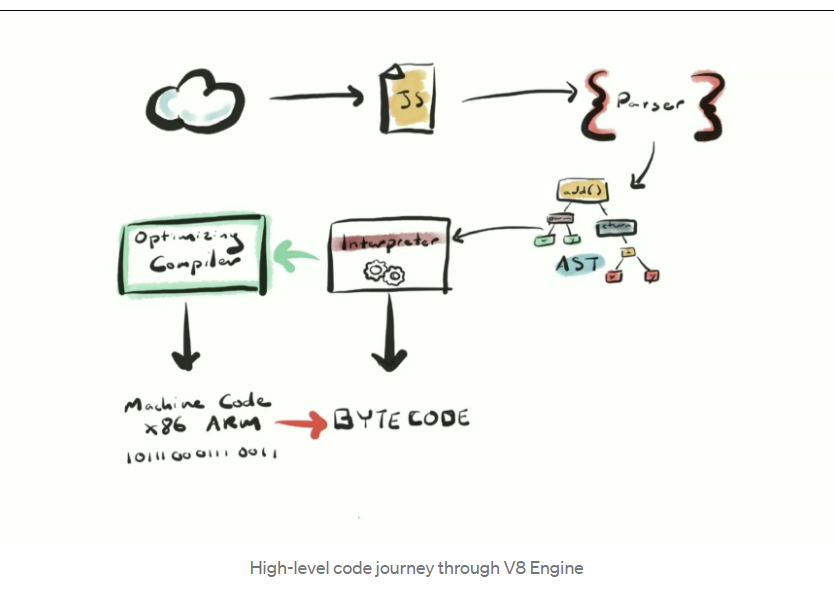 JS
Parser
add()
return
AST
Interpreter
Optimizing
Compiler
Machine Code
x86 ARM
BYTECODE
High-level code journey through V8 Engine